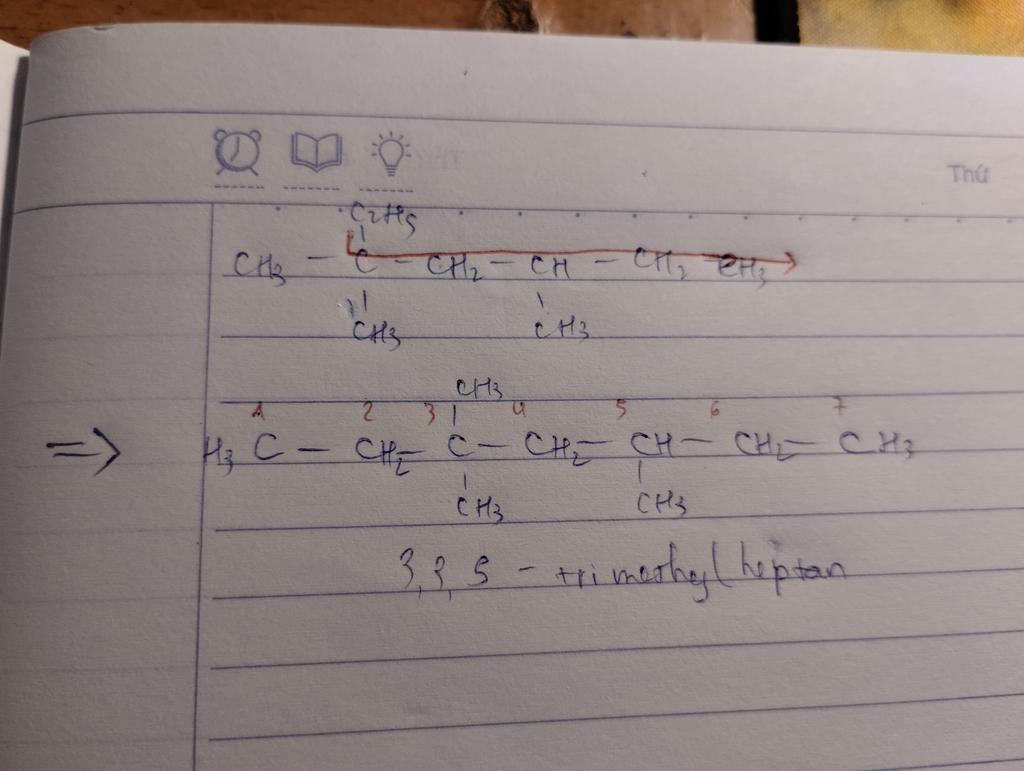 Thứ
C2H5
CH3 - C - CH2 - CH - CH2 CH3
CH3 CH3
CH3
1 2 3 4 5 6 7
=> H3C - CH2 - C - CH2 - CH - CH2 - CH3
CH3 CH3
3, 3, 5 - trimethyl heptan